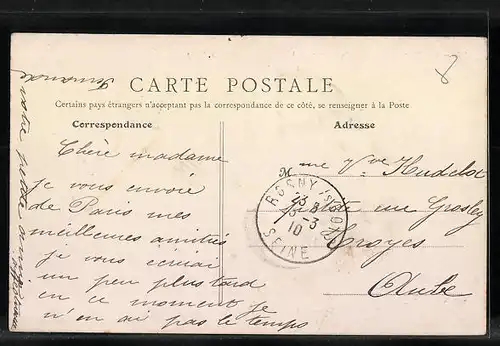 CARTE POSTALE
Certains pays étrangers n'acceptant pas la correspondance de ce côté, se renseigner à la Poste
Correspondance
Adresse
Chère madame
je vous envoie
de Paris mes
meilleures amitiés
je vous ecrirai
un peu plus tard
en ce moment je
n'en ai pas le temps
votre petite amie
Fernande
M me Vve Hudelot
rue Grosley
Troyes
Aube
ROSNY
SEINE
8